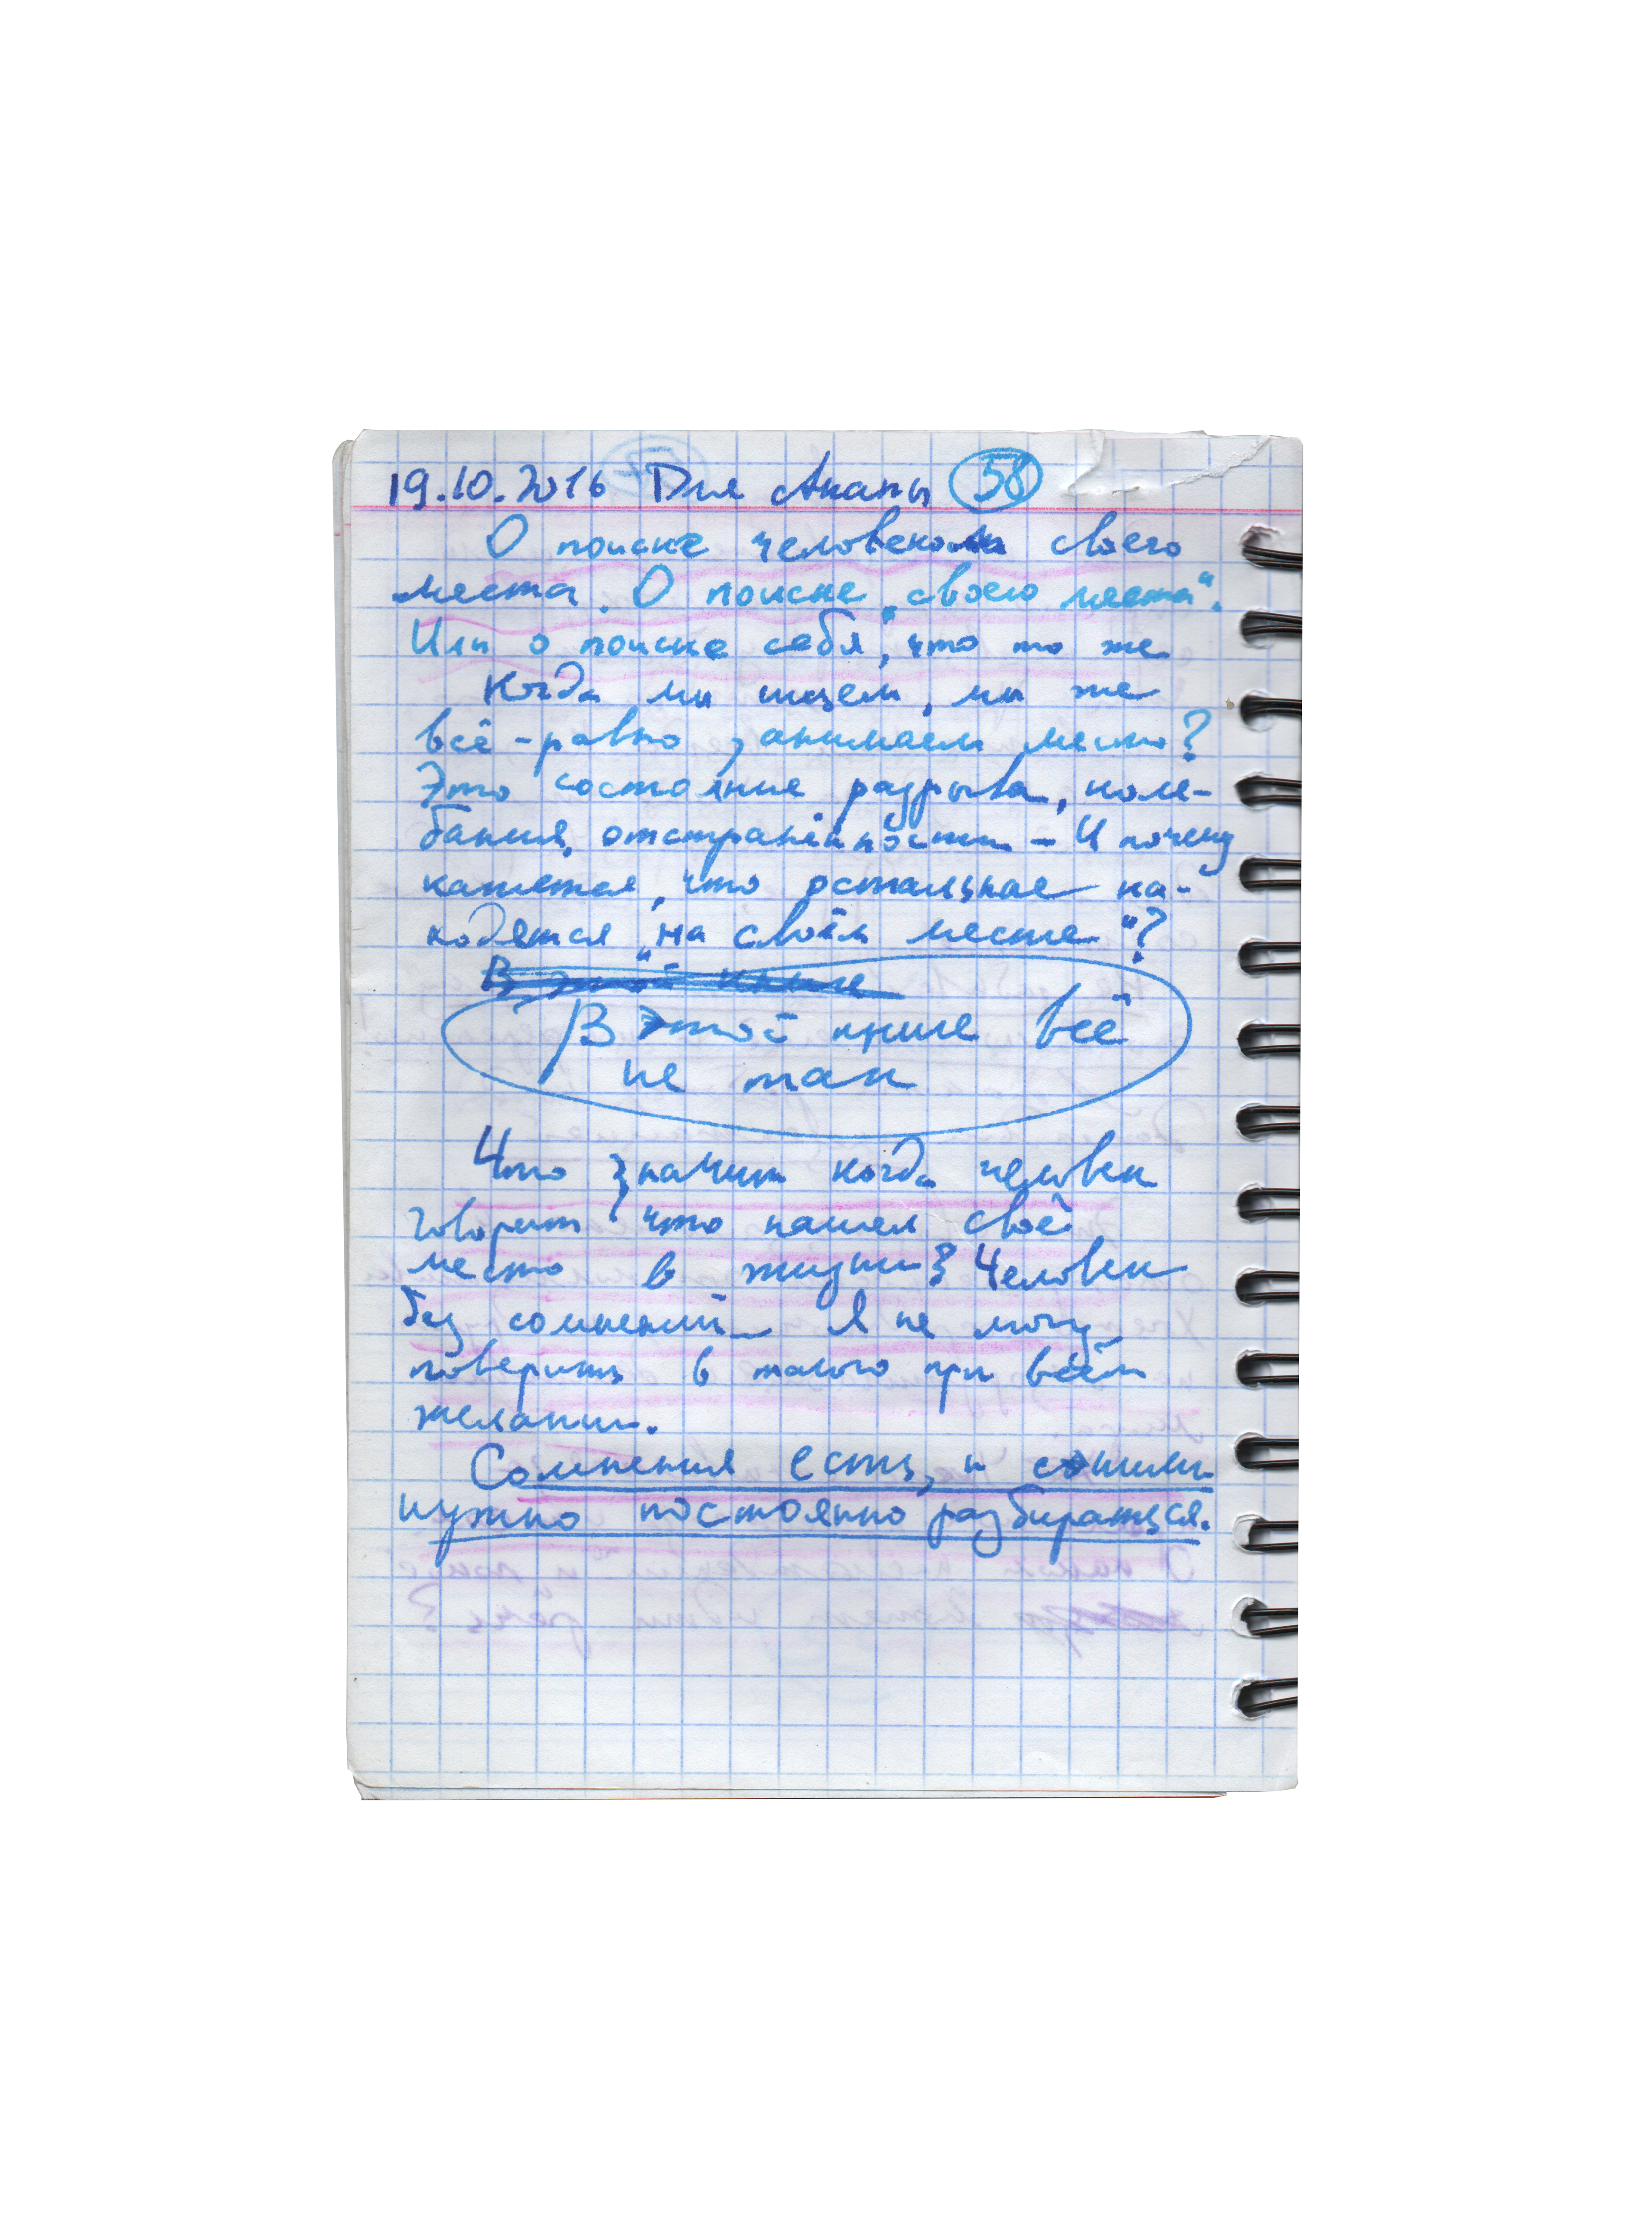 19.10.2016 Для Анапы 58
О поиске человеком своего
места. О поиске „своего места“.
Или о поиске себя, что то же
Когда мы ищем, мы же
всё-равно занимаем место?
Это состояние разрыва, коле-
бания, отстранённости – И почему
кажется, что остальные на-
ходятся „на своём месте“?
В этой книге
В этой книге всё
не так
Что значит когда человек
говорит, что нашел своё
место в жизни? Человек
без сомнений – Я не могу
поверить в такого при всём
желании.
Сомнения есть, и с ними
нужно постоянно разбираться.